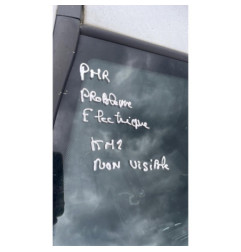 PMR
PROBLEME
Electrique
KM?
NON VISIBLE